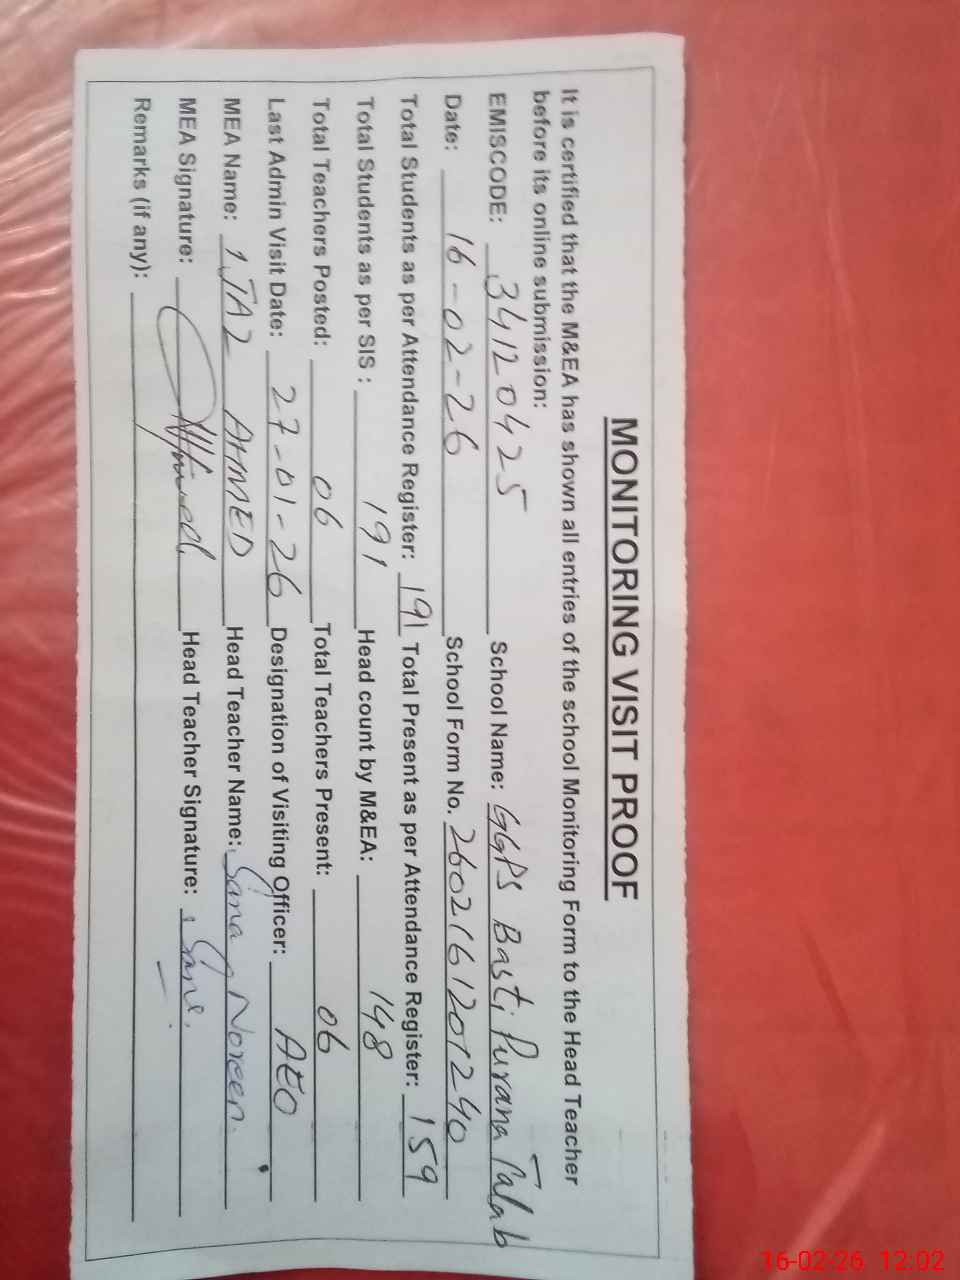 MONITORING VISIT PROOF
It is certified that the M&EA has shown all entries of the school Monitoring Form to the Head Teacher
before its online submission:
EMISCODE: 34120425 School Name: GGPS Basti Purana Talab
Date: 16-02-26 School Form No. 2602161201240
Total Students as per Attendance Register: 191 Total Present as per Attendance Register: 159
Total Students as per SIS : 191 Head count by M&EA: 148
Total Teachers Posted: 06 Total Teachers Present: 06
Last Admin Visit Date: 27-01-26 Designation of Visiting Officer: AEO
MEA Name: IJAZ AHMED Head Teacher Name: Sana Noreen.
MEA Signature: Ahmed Head Teacher Signature: Sana.
Remarks (if any):
16-02-26 12:02